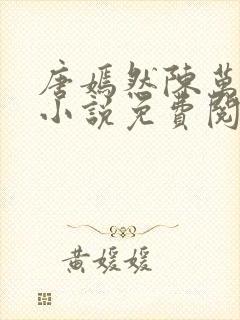 唐嫣然陈万
小說免費閱
黃媛媛